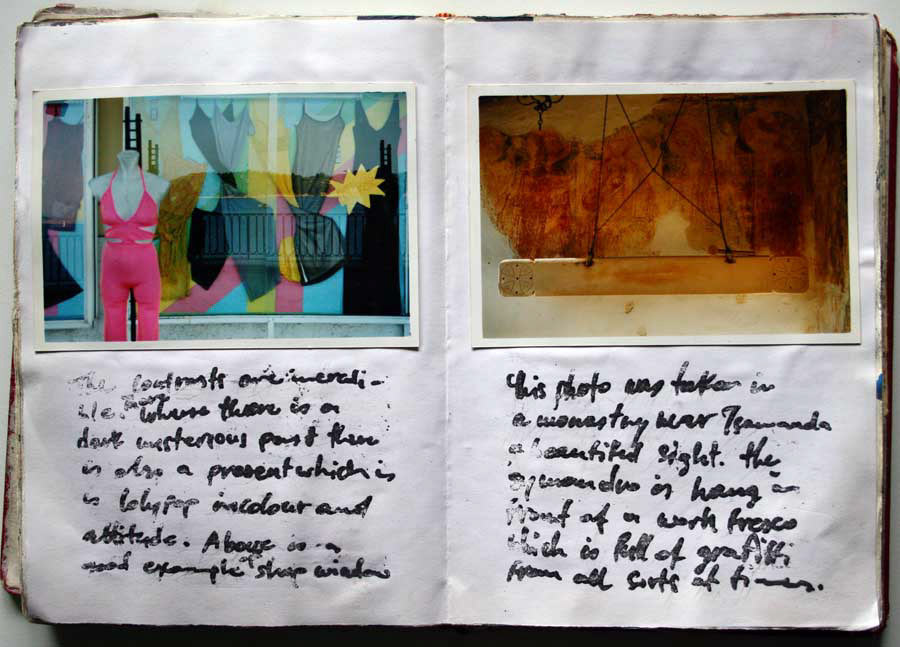 The contrasts are incredi-
ble. where there is a
dark misterious past then
is also a present which is
is lolypop incolour and
attitude. Above is a
good example shop window
this photo was taken in
a monastry near Tsamanda
a beautiful sight. the
is hang in
front of a work fresco
which is full of grafitti
from all sorts of times.